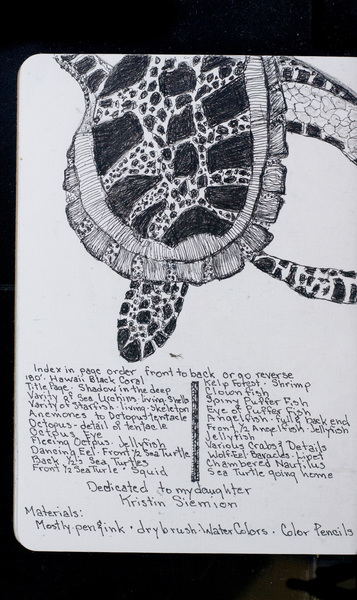 Index in page order front to back or go reverse
180° Hawaii Black Coral
Title Page · Shadow in the deep
Varity of Sea Urchins · living · Shells
Varity of Starfish · living · Skeleton
Anemones to Octopus tentacle
Octopus - detail of tentacle
Octpus Eye
Fleeing Octpus · Jellyfish
Dancing Eel · Front ½ Sea Turtle
Back ½ · Sea Turtles
Front ½ Sea Turtle · Squid
Kelp Forest · Shrimp
Clown fish
Spiny Puffer Fish
Eye of Puffer Fish
Angelfish full & back end
Front ½ Angelfish Jellyfish
Jellyfish
Various Crabs & Details
Wolf Eel · Baracles · Lipet
Chambered Nautilus
Sea Turtle going home
Dedicated to my daughter
Kristin Siemion
Materials:
Mostly pen & ink · dry brush · Water Colors · Color Pencils